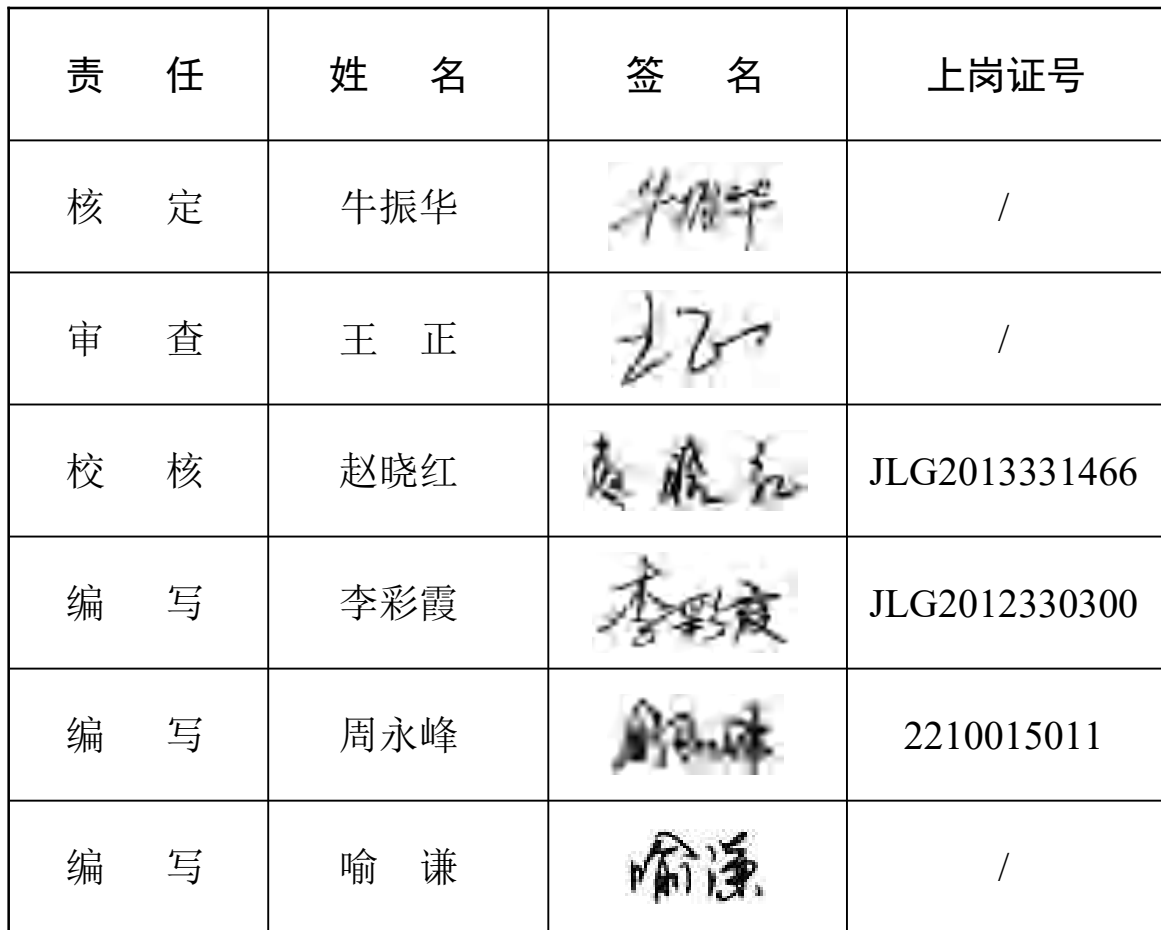 责 任 姓 名 签 名 上岗证号
核 定 牛振华 牛振华 /
审 查 王 正 王正 /
校 核 赵晓红 赵晓红 JLG2013331466
编 写 李彩霞 李彩霞 JLG2012330300
编 写 周永峰 周永峰 2210015011
编 写 喻 谦 喻谦 /